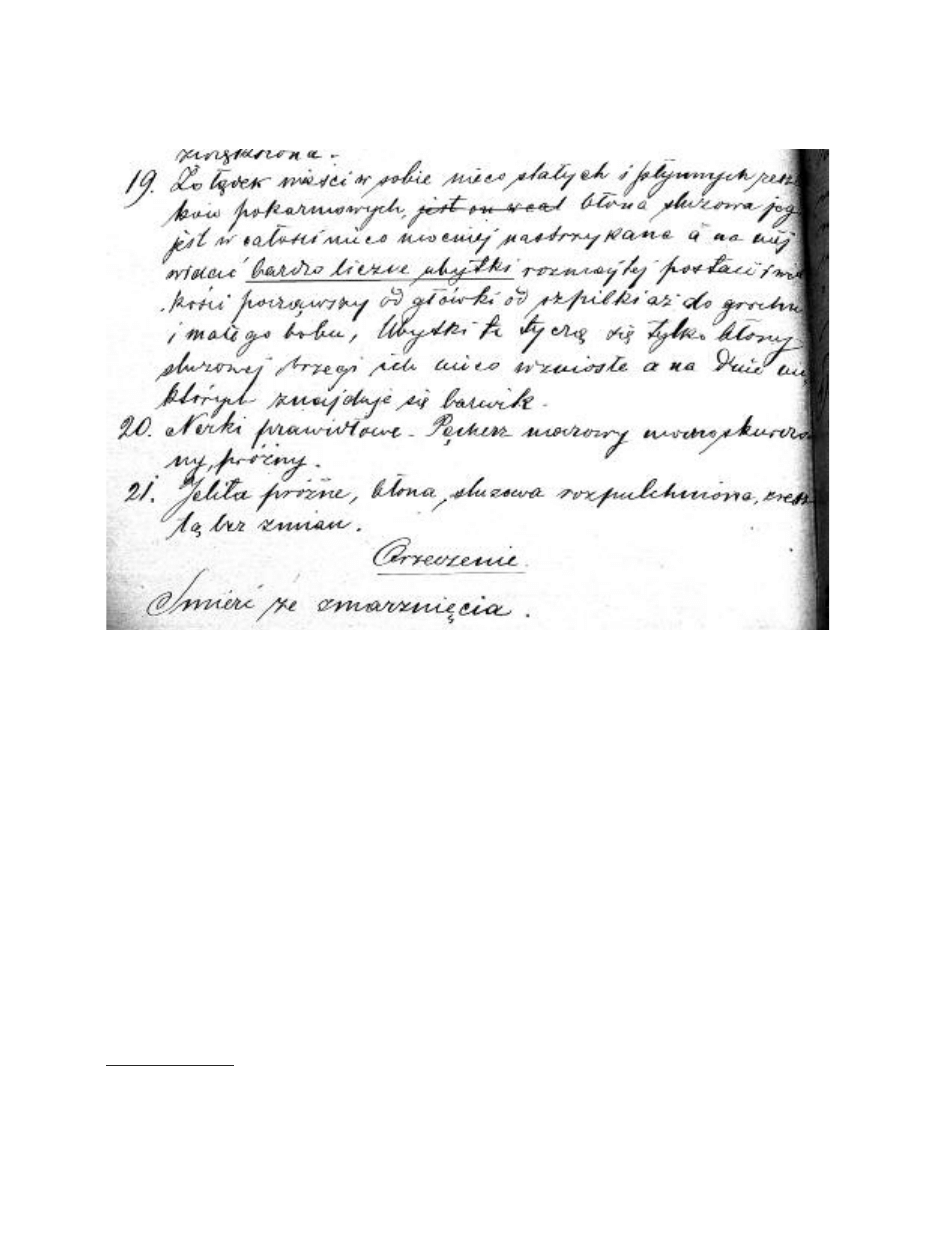 zwiększona.
19. Żołądek mieści w sobie nieco stałych i płynnych resz
ków pokarmowych, jest on w cał błona śluzowa jeg
jest w całości nieco mocniej nastrzykana a na niej
widać bardzo liczne ubytki rozmajtej postaci i wiel
kości począwszy od główki od szpilki aż do grochu
i małego bobu, Ubytki te tyczą się tylko błony
śluzowej brzegi ich nieco wzniosłe a na dnie nie
których znajduje się barwik.
20. Nerki prawidłowe. Pęcherz moczowy mocno skurczo
ny, próżny.
21. Jelita próżne, błona śluzowa rozpulchniona, zresz
tą bez zmian.
Orzeczenie.
Śmierć ze zmarznięcia.